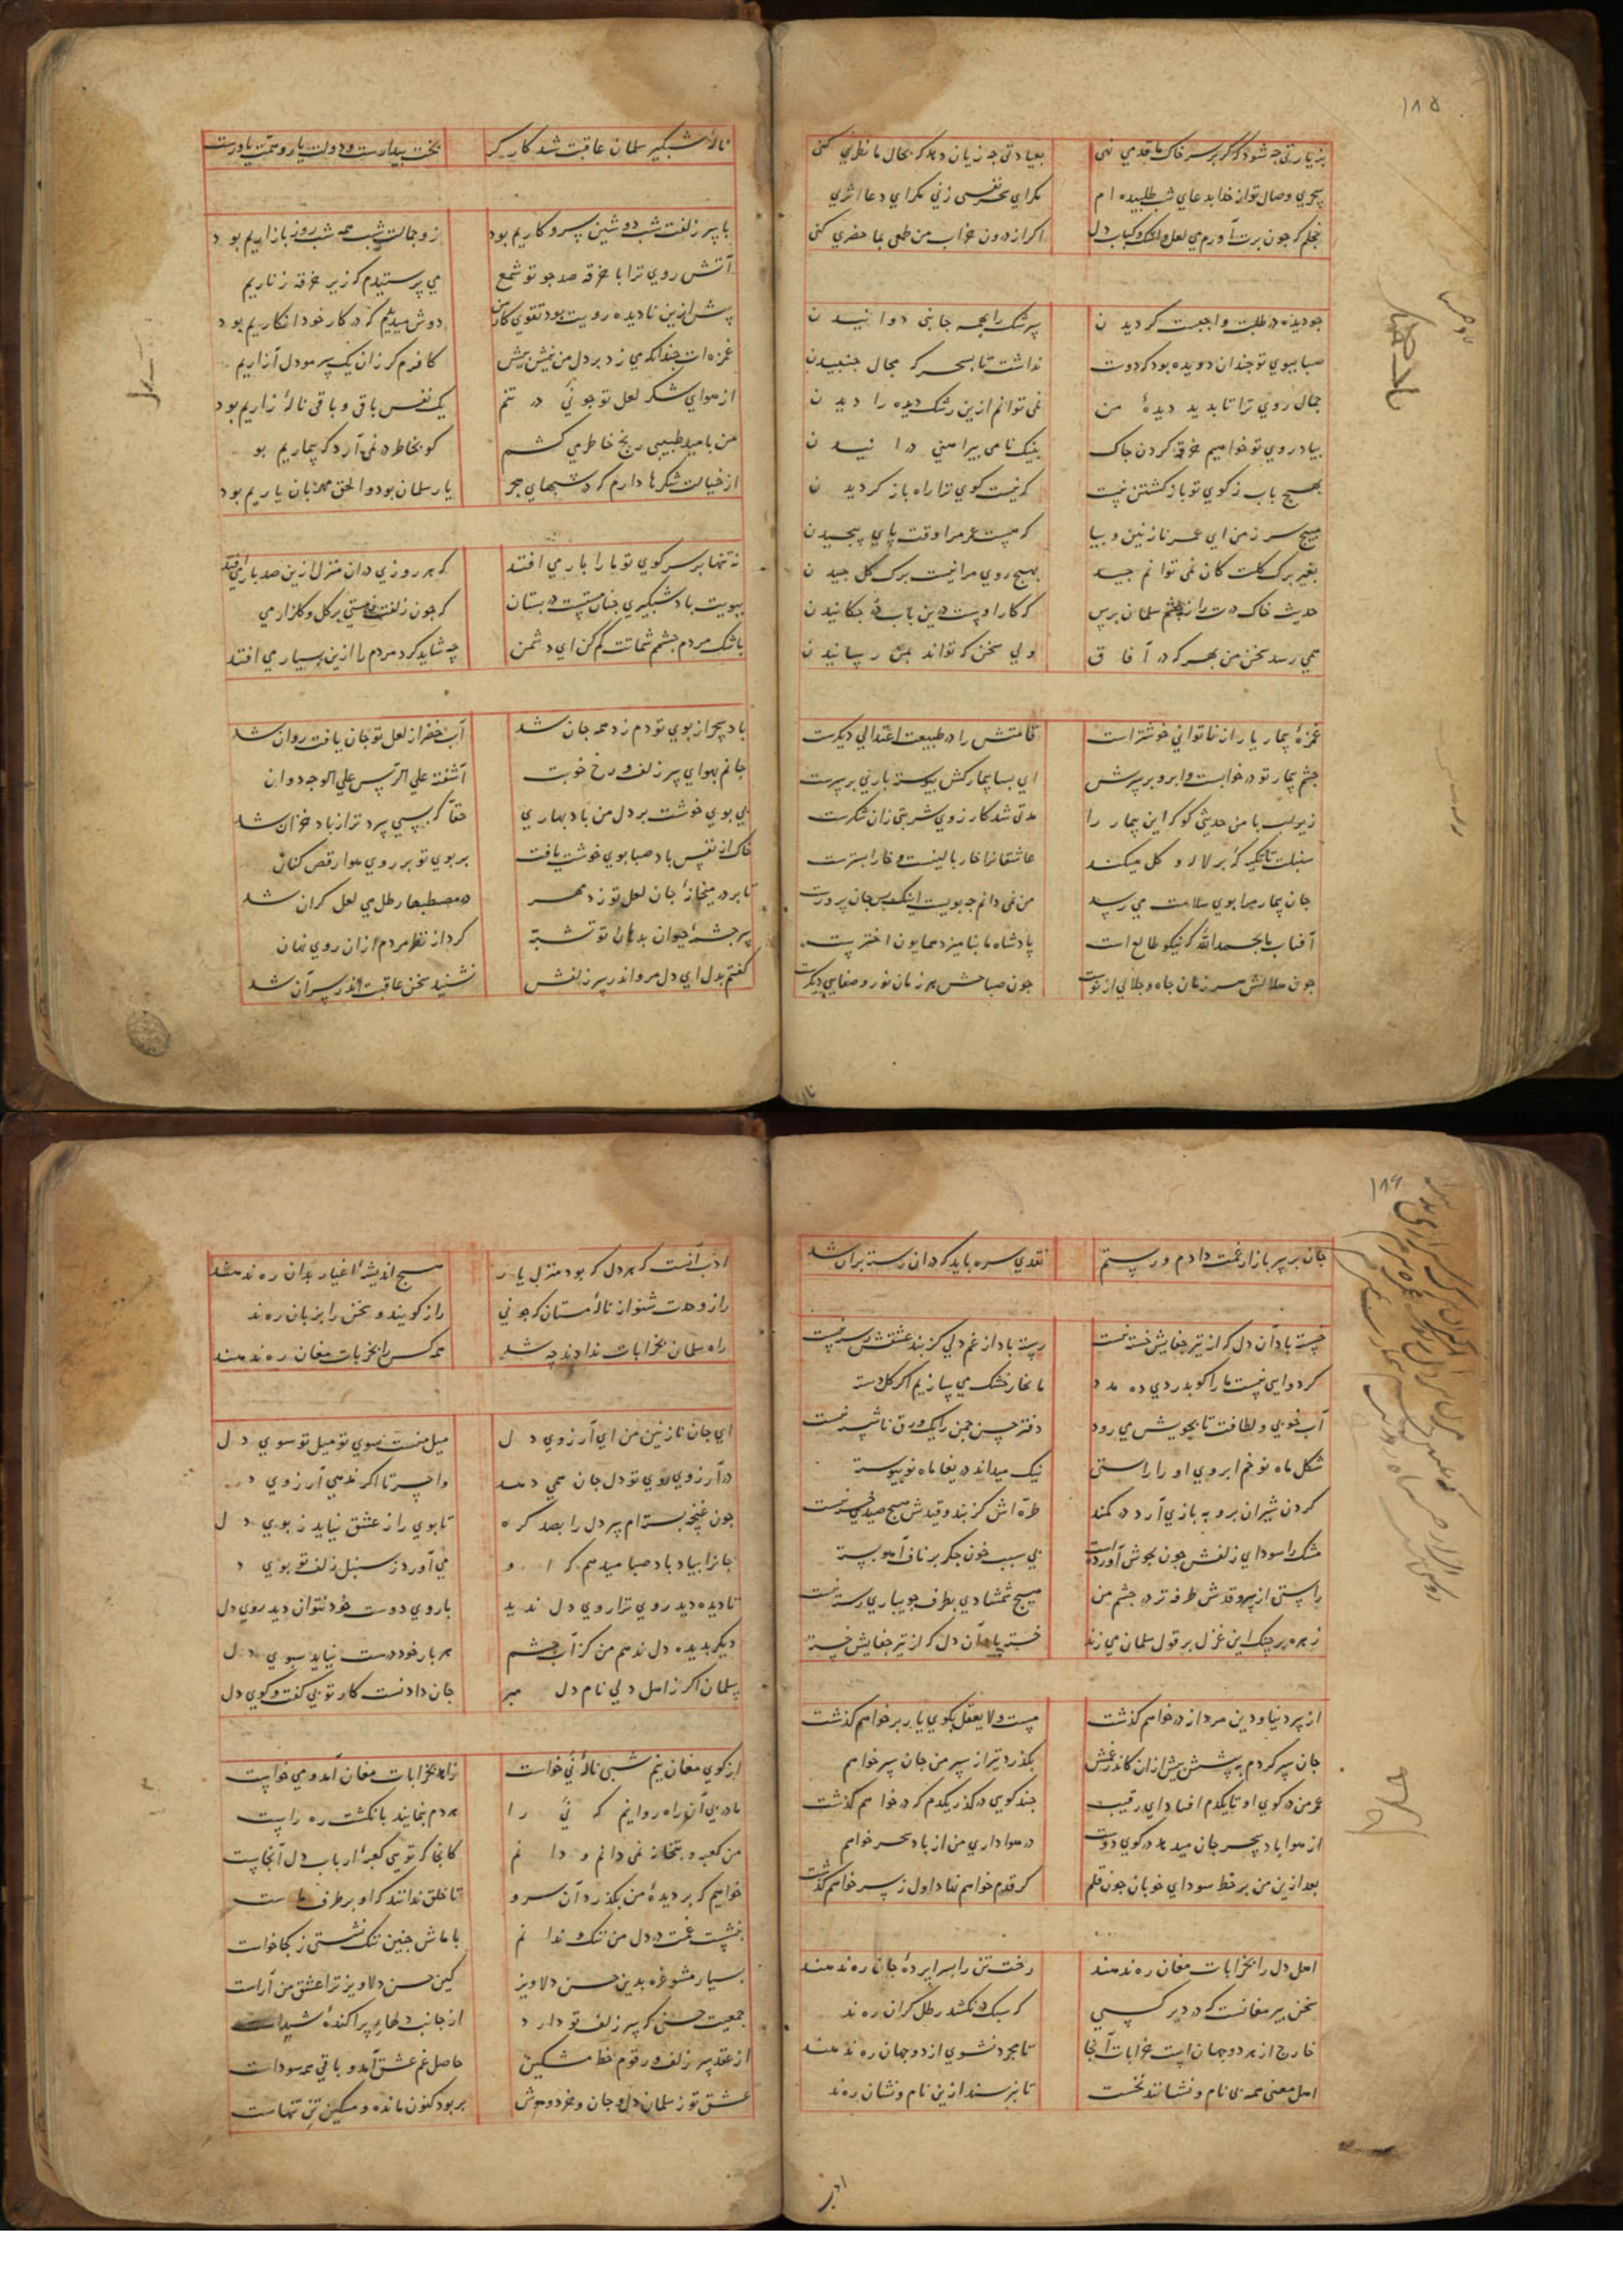 ۱۸۵
بزیارتی چه شود که گر بر سر خاک ما قدمی نهی بعیادتی چه زیان دهد که بحال ما نظری کنی
سحری وصال تو از خدا بدعای شب طلبیده ام مکر ای سحر نفسی زنی مکر ای دعا اثری
خجلم که چون برت آورم می لعل و اشک و کباب دل اکر از درون خراب من طلبی بما حضری کنی
چو دیده در طلبت واجبست کردیدن سرشک را بهمه جانبی دوانیدن
صبا ببوی تو چندان دویده بود که دوت نداشت تا بسحر که مجال جنبیدن
جمال روی ترا تا بدید دیدهٔ من نمی توانم ازین رشک دیده را دیدن
بیاد روی تو خواهیم خرقه کردن چاک بنیک نامی پیراهنی درانیدن
بهیچ باب ز کوی تو باز کشتن نیست که نیست کوی ترا راه باز کردیدن
مپیچ سر ز من ای عمر نازنین و بیا که نیست عمر مرا وقت پای پیچیدن
بغیر برک کلت کان نمی توانم چید بهیچ روی مرا نیست برک کل چیدن
حدیث خاک درت را ز چشم سلمان پرس که کار اوست درین باب در چکانیدن
همی رسد سخن من بهر که در آفاق ولی سخن که تواند بمن رسانیدن
غمزهٔ بیمار یار از ناتوانی خوشترست قامتش را در طبیعت اعتدالی دیکرست
چشم بیمار تو در خوابست و ابرو بر سرش ای بسا بیمار کش پیوسته یاری بر سرست
زیر لب با من حدیثی کو که این بیمار را مدتی شد کارزوی شربتی زان شکرست
سنبلت تا تکیه که بر لاله و کل میکند عاشقانرا خار بالینست و خارا بسترست
جان بیمار مرا بوی سلامت می رسد من نمی دانم چه بویست اینک بس جان پرورت
آفتاب ما بحمدالله که نیکو طالع است پادشاه ما بنامیزد همایون اخترست
چون هلالش هر زمان جاه و جلالی از نوست چون صباحش هر زمان نور و صفایی دیکرست
نالهٔ شبکیر سلمان عاقبت شد کارکر بخت بیدارست و دولت یار و همت یاورست
با سر زلفت شب دوشین سر و کاریم بود ز وجالت شب همه شب روز بازاریم بود
آتش روی ترا با خرقه صد چو تو شمع می پرستیدم که زیر خرقه زناریم
پیش ازین نادیده رویت بود تقوی کار من دوش میدیدم که در کار خود انکاریم بود
غمزه ات چندانکه می زد بر دل من نیش بیش کافرم کر زان یک سر مو دل آزاریم
از هوای شکر لعل تو چو نیٔ در تنم یک نفس باقی و باقی نالهٔ زاریم بود
من بامید طبیبی رنج خاطر می کشم کو بخاطر در نمی آرد که بیماریم بو
از خیالت شکرها دارم که در شبهای هجر یار سلمان بود و الحق مهربان یاریم بود
نه تنها بر سر کوی تو ما را بار می افتد که هر روزی در ان منزل ازین صد بار می افتد
ببویت باد شبکیری چنان مستست در بستان که چون زلفت ز مستی بر کل و کلزار می
باشک مردم چشم شماتت کم کن ای دشمن چه شاید کرد مردم را ازین بسیار می افتد
باد سحر از بوی تو دم زد همه جان شد آب خضر از لعل تو جان یافت روان شد
جانم بهوای سر زلف و رخ خوبت آشفت علی الرأس علی الوجه دوان
بی بوی خوشت بر دل من باد بهاری حقا که بسی سردتر از باد خزان شد
خاک از نفس باد صبا بوی خوشت یافت بر بوی تو بر روی هوا رقص کنان
تا بر در میخانهٔ جان لعل تو زد مهر در مصطبها رطل می لعل کران شد
سرچشمهٔ حیوان بدهان تو تشبه کرد از نظر مردم از ان روی نهان
کفتم بدل ای دل مرو اندر سر زلفش نشنید سخن عاقبت اندر سر آن شد
۱۸۶
جان بر سر بازار غمت دادم و رستم نقدی سره باید که در ان رسته بران شد
خسته باد آن دل که از تیر جفایش خسته نیست رسته باد از غم دلی کز بند عشقش رسته نیست
کر دوایی نیست ما را کو بدردی ده مدد ما بخار خشک می سازیم اکر کلدسته
آب خوبی و لطافت تا بجویش می رود دفتر حسن چمن را یک ورق ناشسته نیست
شکل ماه نو خم ابروی او را راستی نیک میماند دریغا ماه نو پیوسته
کردن شیران بروبه بازی آرد در کمند طره اش کز بند و قیدش هیچ صیدی جسته نیست
مشک را سودای زلفش خون بجوش آورده است بی سبب خون جکر بر ناف آهو بسته
راستی از سرو قدش طرفه تر در چشم من هیچ شمشادی بطرف جویباری رسته نیست
زهره بر چنک این غزل بر قول سلمان می زند خسته باد آن دل که از تیر جفایش خسته
از سر دنیا و دین مردانه درخواهم کذشت مست و لا یعقل بکوی یار برخواهم کذشت
جان سپر کردم به پیشش پیش ازان کاندر غمش بکذرد تیر از سپر من جان سپر خواهم
عمر من در کوی او تا یکدم افتاد ای رقیب چند کویی درکذر یکدم که درخواهم کذشت
از هوا باد سحر جان میدهد در کوی دوست در هواداری من از باد سحر خواهم
بعد ازین من بر خط سودای خوبان چون قلم کر قدم خواهم نهاد اول ز سر خواهم کذشت
اهل دل را بخرابات مغان ره ندهند رخت تن را بسراپردهٔ جان ره ندهند
سخن پیر مغانست که در دیر کسی که سبک درنکشد رطل کران ره ند
خارج از هر دو جهان است خرابات آنجا تا مجرد نشوی از دو جهان ره ندهند
اهل معنی همه بی نام و نشانند نخست تا نپرسند ازین نام و نشان ره ند
ادب آنست که هر دل که بود منزل یار هیچ اندیشهٔ اغیار بدان ره ندهند
راز وحدت شنو از نالهٔ مستان که چو نی راز کویند و سخن را بزبان ره ند
راه سلمان بخرابات ندادند چه شد همه کس را بخرابات مغان ره ندهند
ای جان نازنین من ای آرزوی دل میل منست سوی تو میل تو سوی دل
در آرزوی روی تو دل جان همی دهد واحسرتا اکر ندهی آرزوی د
چون غنچه بسته ام سر دل را بصد کره تا بوی راز عشق نیاید ز بوی دل
جانرا بیاد باد صبا میدهم که او می آورد ز سنبل زلف تو بوی د
تا دیده دید روی ترا روی دل ندید با روی دوست خود نتوان دید روی دل
دیکر بدیده دل ندهم من کز آب چشم هر بار خود درست نیاید سبوی دل
سلمان اکر ز اهل دلی نام دل مبر جان دادنست کار تو بی کفت و کوی دل
از کوی مغان نیم شبی نالهٔ نی خاست زاهد بخرابات مغان آمد و می خواست
ما در پی آن راه روانیم که نیٔ را هر دم بنمایند بانکشت ره راست
من کعبه و بتخانه نمی دانم و دانم کانجا که تویی کعبهٔ ارباب دل آنجاست
خواهیم که بر دیدهٔ من بکذرد آن سرو تا خلق ندانند که او بر طرف ماست
بنشست غمت در دل من تنک و ندانم با ماش چنین تنک نشستی ز کجا خاست
بسیار مشو غره بدین حسن دلاویز کین حسن دلاویز ترا عشق من آراست
جمعیت حسنی که سر زلف تو دارد از جانب دلهای پراکندهٔ شیداست
از عقد سر زلف و رقوم خط مشکین حاصل غم عشق آمد و باقی همه سوداست
عشق تو ز سلمان دل و جان و خرد و هوش بربود کنون مانده و مسکین تن تنهاست